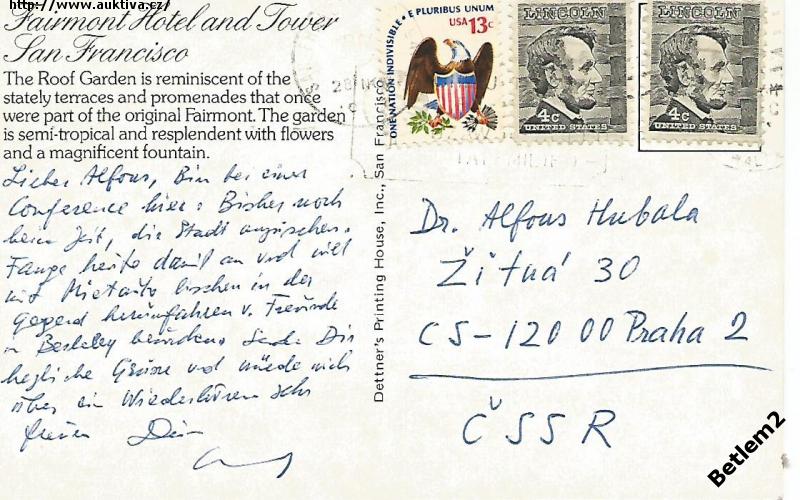 http://www.auktiva.cz/
Fairmont Hotel and Tower
San Francisco
The Roof Garden is reminiscent of the
stately terraces and promenades that once
were part of the original Fairmont. The garden
is semi-tropical and resplendent with flowers
and a magnificent fountain.
Lieber Alfons, Bin bei einer
Conference hier. Bisher noch
kein Zeit, die Stadt anzusehen.
Fange heute damit an und will
mit Mietauto bischen in der
Gegend herumfahren v. Freunde
in Berkeley besuchen. Sende Dir
herzliche Grüsse und würde mich
über ein Wiederhören sehr
freuen Dein
Dettner's Printing House, Inc., San Francisco
ONE NATION INDIVISIBLE • E PLURIBUS UNUM
USA 13c
LINCOLN
4c
UNITED STATES
LINCOLN
4c
UNITED STATES
Dr. Alfons Hubala
Žitná 30
CS-120 00 Praha 2
ČSSR
Betlem2